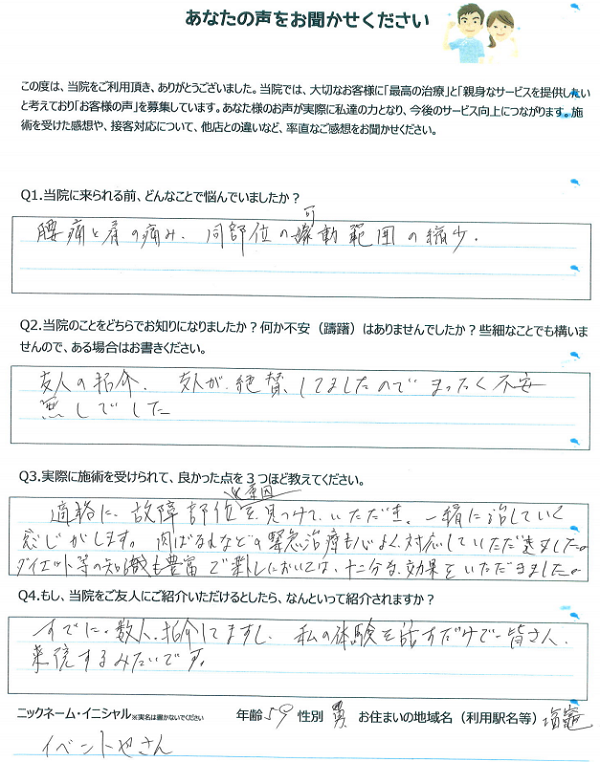 あなたの声をお聞かせください
この度は、当院をご利用頂き、ありがとうございました。当院では、大切なお客様に「最高の治療」と「親身なサービスを提供したい
と考えており「お客様の声」を募集しています。あなた様のお声が実際に私達の力となり、今後のサービス向上につながります。施
術を受けた感想や、接客対応について、他店との違いなど、率直なご感想をお聞かせください。
Q1.当院に来られる前、どんなことで悩んでいましたか？
腰痛と肩の痛み、同部位の可動範囲の縮少.
Q2.当院のことをどちらでお知りになりましたか？何か不安（躊躇）はありませんでしたか？些細なことでも構いま
せんので、ある場合はお書きください。
友人の紹介. 友人が絶賛してましたのでまったく不安
無しでした
Q3.実際に施術を受けられて、良かった点を３つほど教えてください。
適格に、故障部位と原因を見つけていただき。一緒に治していく
感じがします。肉ばなれなどの緊急治療も心よく対応していただきました。
ダイエット等の知識も豊富で 私においては、十二分な効果をいただきました。
Q4.もし、当院をご友人にご紹介いただけるとしたら、なんといって紹介されますか？
すでに、数人、紹介してますし、私の体験を話すだけで皆さん、
来院するみたいです。
ニックネーム・イニシャル※実名は書かないでください 年齢 59 性別 男 お住まいの地域名（利用駅名等）塩竈
イベントやさん